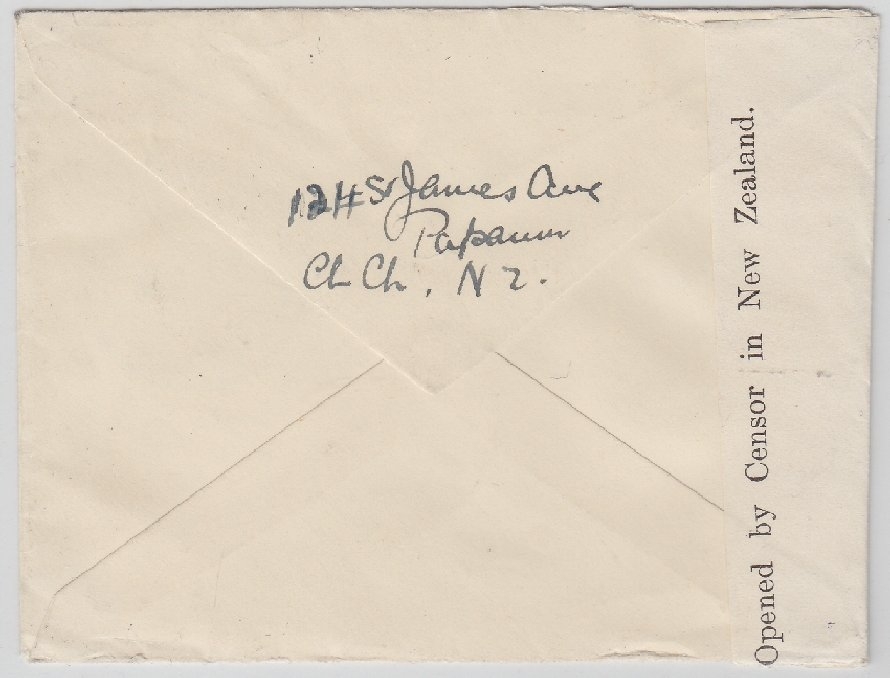 124 St James Ave
Papanui
Ch Ch. N Z.
Opened by Censor in New Zealand.